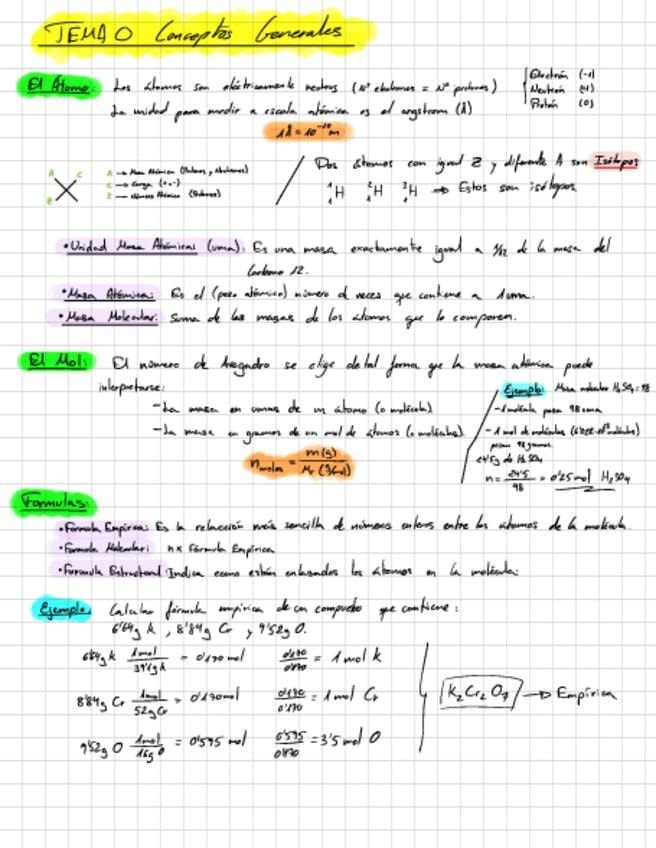 TEMA 0 Conceptos Generales
El Átomo: Los átomos son eléctricamente neutros (Nº electrones = Nº protones)
Electrón (-1)
Neutrón (+1)
Protón (0)
La unidad para medir a escala atómica es el angstrom (Å)
1Å = 10⁻¹⁰ m
A C
Z
A → Masa Atómica
C → Carga (+,-)
Z → Número Atómico
Dos átomos con igual Z y diferente A son Isótopos
¹₁H ²₁H ³₁H ⇒ Estos son isótopos.
• Unidad Masa Atómica (uma): Es una masa exactamente igual a 1/12 de la masa del
Carbono 12.
• Masa Atómica: Es el (peso atómico) número de veces que contiene a 1 uma.
• Masa Molecular: Suma de las masas de los átomos que lo componen.
El Mol: El número de Avogadro se elige de tal forma que la masa atómica puede
interpretarse:
- La masa en umas de un átomo (o molécula)
- La masa en gramos de un mol de átomos (o moléculas)
n moles = m(g) / Mr (g/mol)
Ejemplo: Masa molecular H₂SO₄ = 98
- 1 molécula pesa 98 uma
- 1 mol de moléculas
pesan 98 gramos.
24'5g de H₂SO₄
n = 24'5 / 98 = 0'25 mol H₂SO₄
Formulas:
• Fórmula Empírica: Es la relación más sencilla de números enteros entre los átomos de la molécula.
• Formula Molecular: n x Fórmula Empírica
• Formula Estructural: Indica como están enlazados los átomos en la molécula:
Ejemplo: Calcular fórmula empírica de un compuesto que contiene:
6'64g K, 8'84g Cr y 9'52g O.
6'64g K 1mol / 39'1g K = 0'170 mol 0'170 / 0'170 = 1 mol K
8'84g Cr 1mol / 52g Cr = 0'170mol 0'170 / 0'170 = 1 mol Cr
K₂Cr₂O₇ → Empírica
9'52g O 1mol / 16g O = 0'595 mol 0'595 / 0'170 = 3'5 mol O